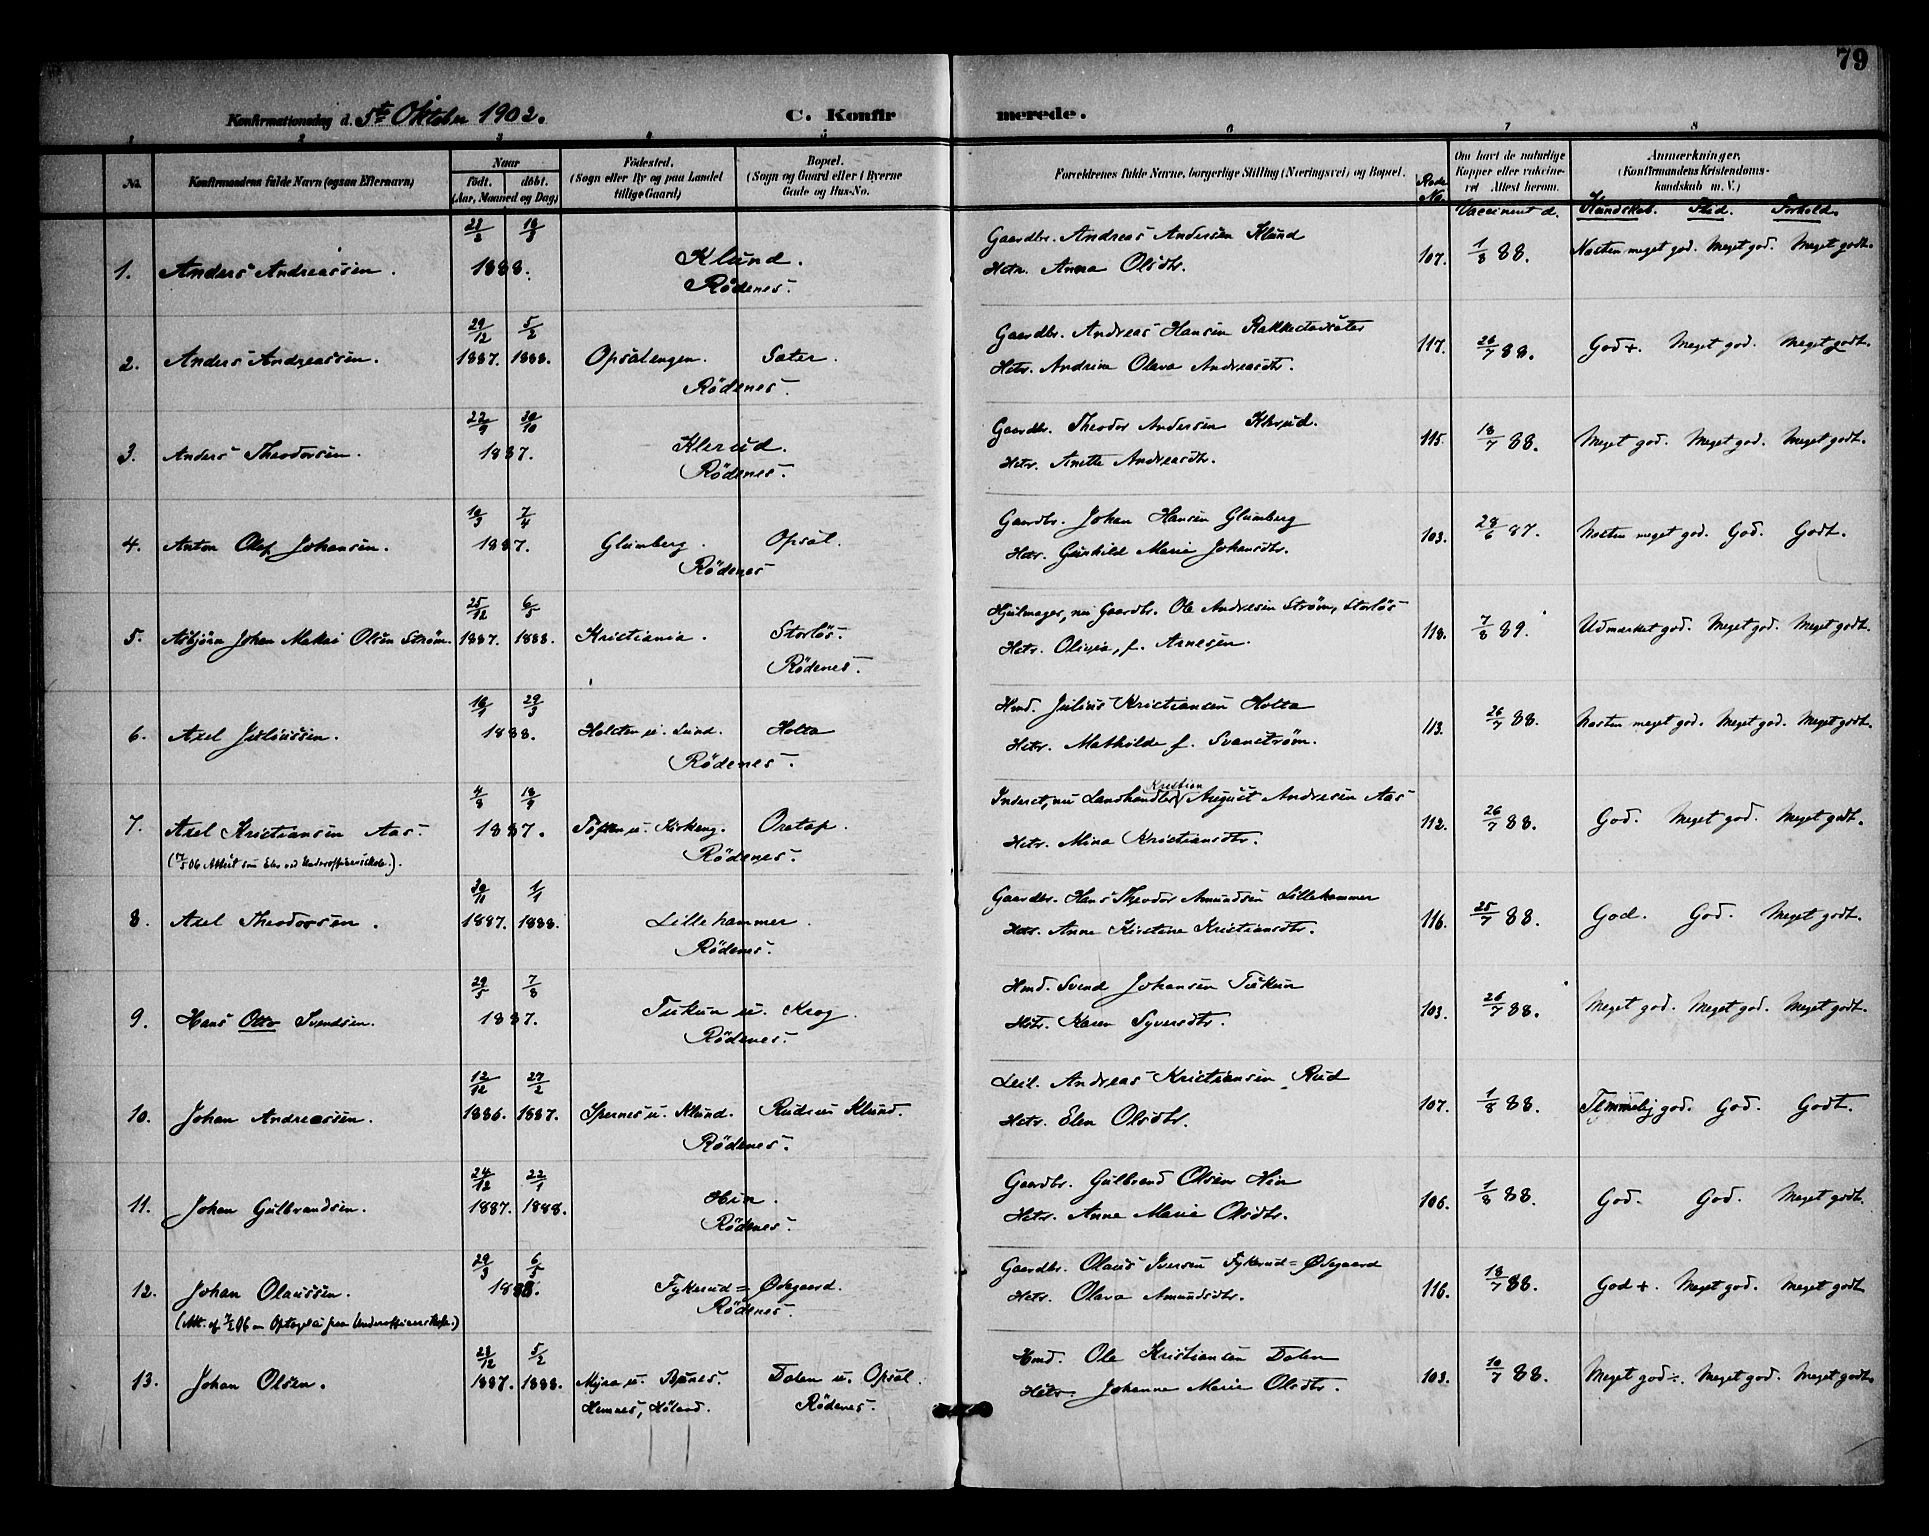 79
Konfirmationsdag d. 5te Oktober 1902.
C. Konfirmerede.
1 2 3 4 5 6 7 8
No.
Konfirmandens fulde Navn (ogsaa Efternavn)
Naar
født. døbt.
(Aar, Maaned og Dag)
Fødested.
(Sogn eller By og paa Landet
tillige Gaard)
Bopæl.
(Sogn og Gaard eller i Byerne
Gade og Hus-No.
Forældrenes fulde Navne, borgerlige Stilling (Næringsvei) og Bopæl.
Rode No.
Om havt de naturlige
Kopper eller vakcine-
ret Attest herom.
Vaccineret d.
Anmærkninger,
(Konfirmandens Kristendoms-
kundskab m. V.)
Kundskab. Flid. Forhold.
1. Anders Andreassen. 1888. Klund. Rödenes.
Gaardbr. Andreas Andersen Klund
Hstr. Anna Olsdtr.
107. 1/8 88. Næsten meget god. Meget god. Meget godt.
2. Anders Andreassen. 29/12 1887. 5/2 1888. Opsalengen. Sæter. Rödenes.
Gaardbr. Andreas Hansen Rakkestadsæter
Hstr. Andrine Olava Andreasdtr.
117. 26/7 88. God +. Meget god. Meget godt.
3. Anders Theodorsen. 22/9 30/10 1887. Klerud. Rödenes.
Gaardbr. Theodor Andersen Klerud.
Hstr. Anette Andreasdtr.
115. 18/7 88. Meget god. Meget god. Meget godt.
4. Anton Olaf Johansen. 7/4 1887. Glimberg. Opsal. Rödenes
Gaardbr. Johan Hansen Glimberg
Hstr. Gunhild Marie Johansdtr.
103. 28/6 87. Næsten meget god. God. Godt.
5. Asbjørn Johan Makri Olsen Strøm. 25/12 1887. 6/5 1888. Kristiania. Storlös. Rödenes.
Hjulmager, nu Gaardbr. Ole Andresen Strøm, Storlös
Hstr. Olivia, f. Arnesen.
118. 7/8 89. Udmærket god. Meget god. Meget godt.
6. Axel Juliussen. 29/3 1888. Holcten u. Lund. Holta Rödenes.
Hmd. Julius Kristiansen Holta
Hstr. Mathilde f. Svanstrøm.
113. 26/7 88. Næsten meget god. Meget god. Meget godt.
7. Axel Kristiansen Aas. 4/8 18/9 1887. u. Kirkeng. Oretop. Rödenes.
Inderst, nu Landhandler Kristian August Andresen Aas
Hstr. Mina Kristiansdtr.
112. 26/7 88. God. Meget god. Meget godt.
( 06 Attest som Elev ved Underofficersskole.).
8. Axel Theodorsen. 30/11 1887. 1/1 1888. Lillehammer. Rödenes.
Gaardbr. Hans Theodor Amundsen Lillehammer
Hstr. Anne Kirstine Kristiansdtr.
116. 25/7 88. God. God. Meget godt.
9. Hans Otto Svendsen. 29/5 7/8 1887. Tukun u. Krog. Rödenes.
Hmd. Svend Johansen Tukun
Hstr. Karen Syversdtr.
103. 26/7 88. Meget god. Meget god. Meget godt.
10. Johan Andreassen. 12/12 1886. 27/2 1887. Spernes u. Klund. Rud u Klund. Rödenes.
Leil. Andreas Kristiansen Rud
Hstr. Elen Olsdtr.
107. 1/8 88. Temmelig god. God. Godt.
11. Johan Gulbrandsen. 24/12 1887. 22/1 1888. Hin. Rödenes.
Gaardbr. Gulbrand Olsen Hin
Hstr. Anne Marie Olsdtr.
106. 1/8 88. God. God. Meget godt.
12. Johan Olaussen. 29/3 6/5 1888. Fykerud = Ødegaard. Rödenes.
Gaardbr. Olaus Iversen Fykerud = Ødegaard
Hstr. Olava Amundsdtr.
116. 18/7 88. God +. Meget god. Meget godt
(Att. af 7/2 06 Underofficersskole.)
13. Johan Olsen. 28/12 1887. 5/2 1888. Myra u. Hemnes, Höland. Dalen u. Opsal. Rödenes.
Hmd. Ole Kristiansen Dalen
Hstr. Johanne Marie Olsdtr.
103. 10/7 88. Meget god ÷. Meget god. Meget godt.